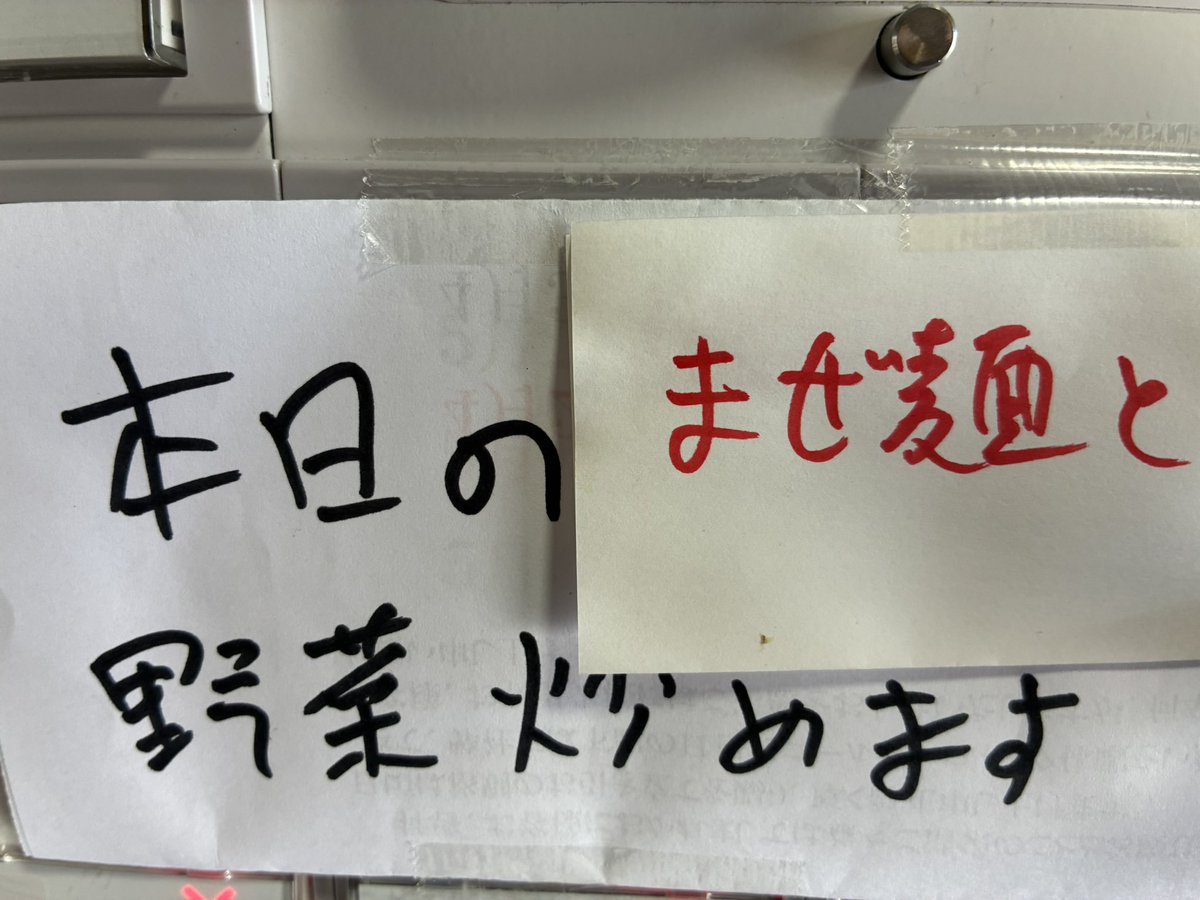 本日の
まぜ麺と
野菜炒めます